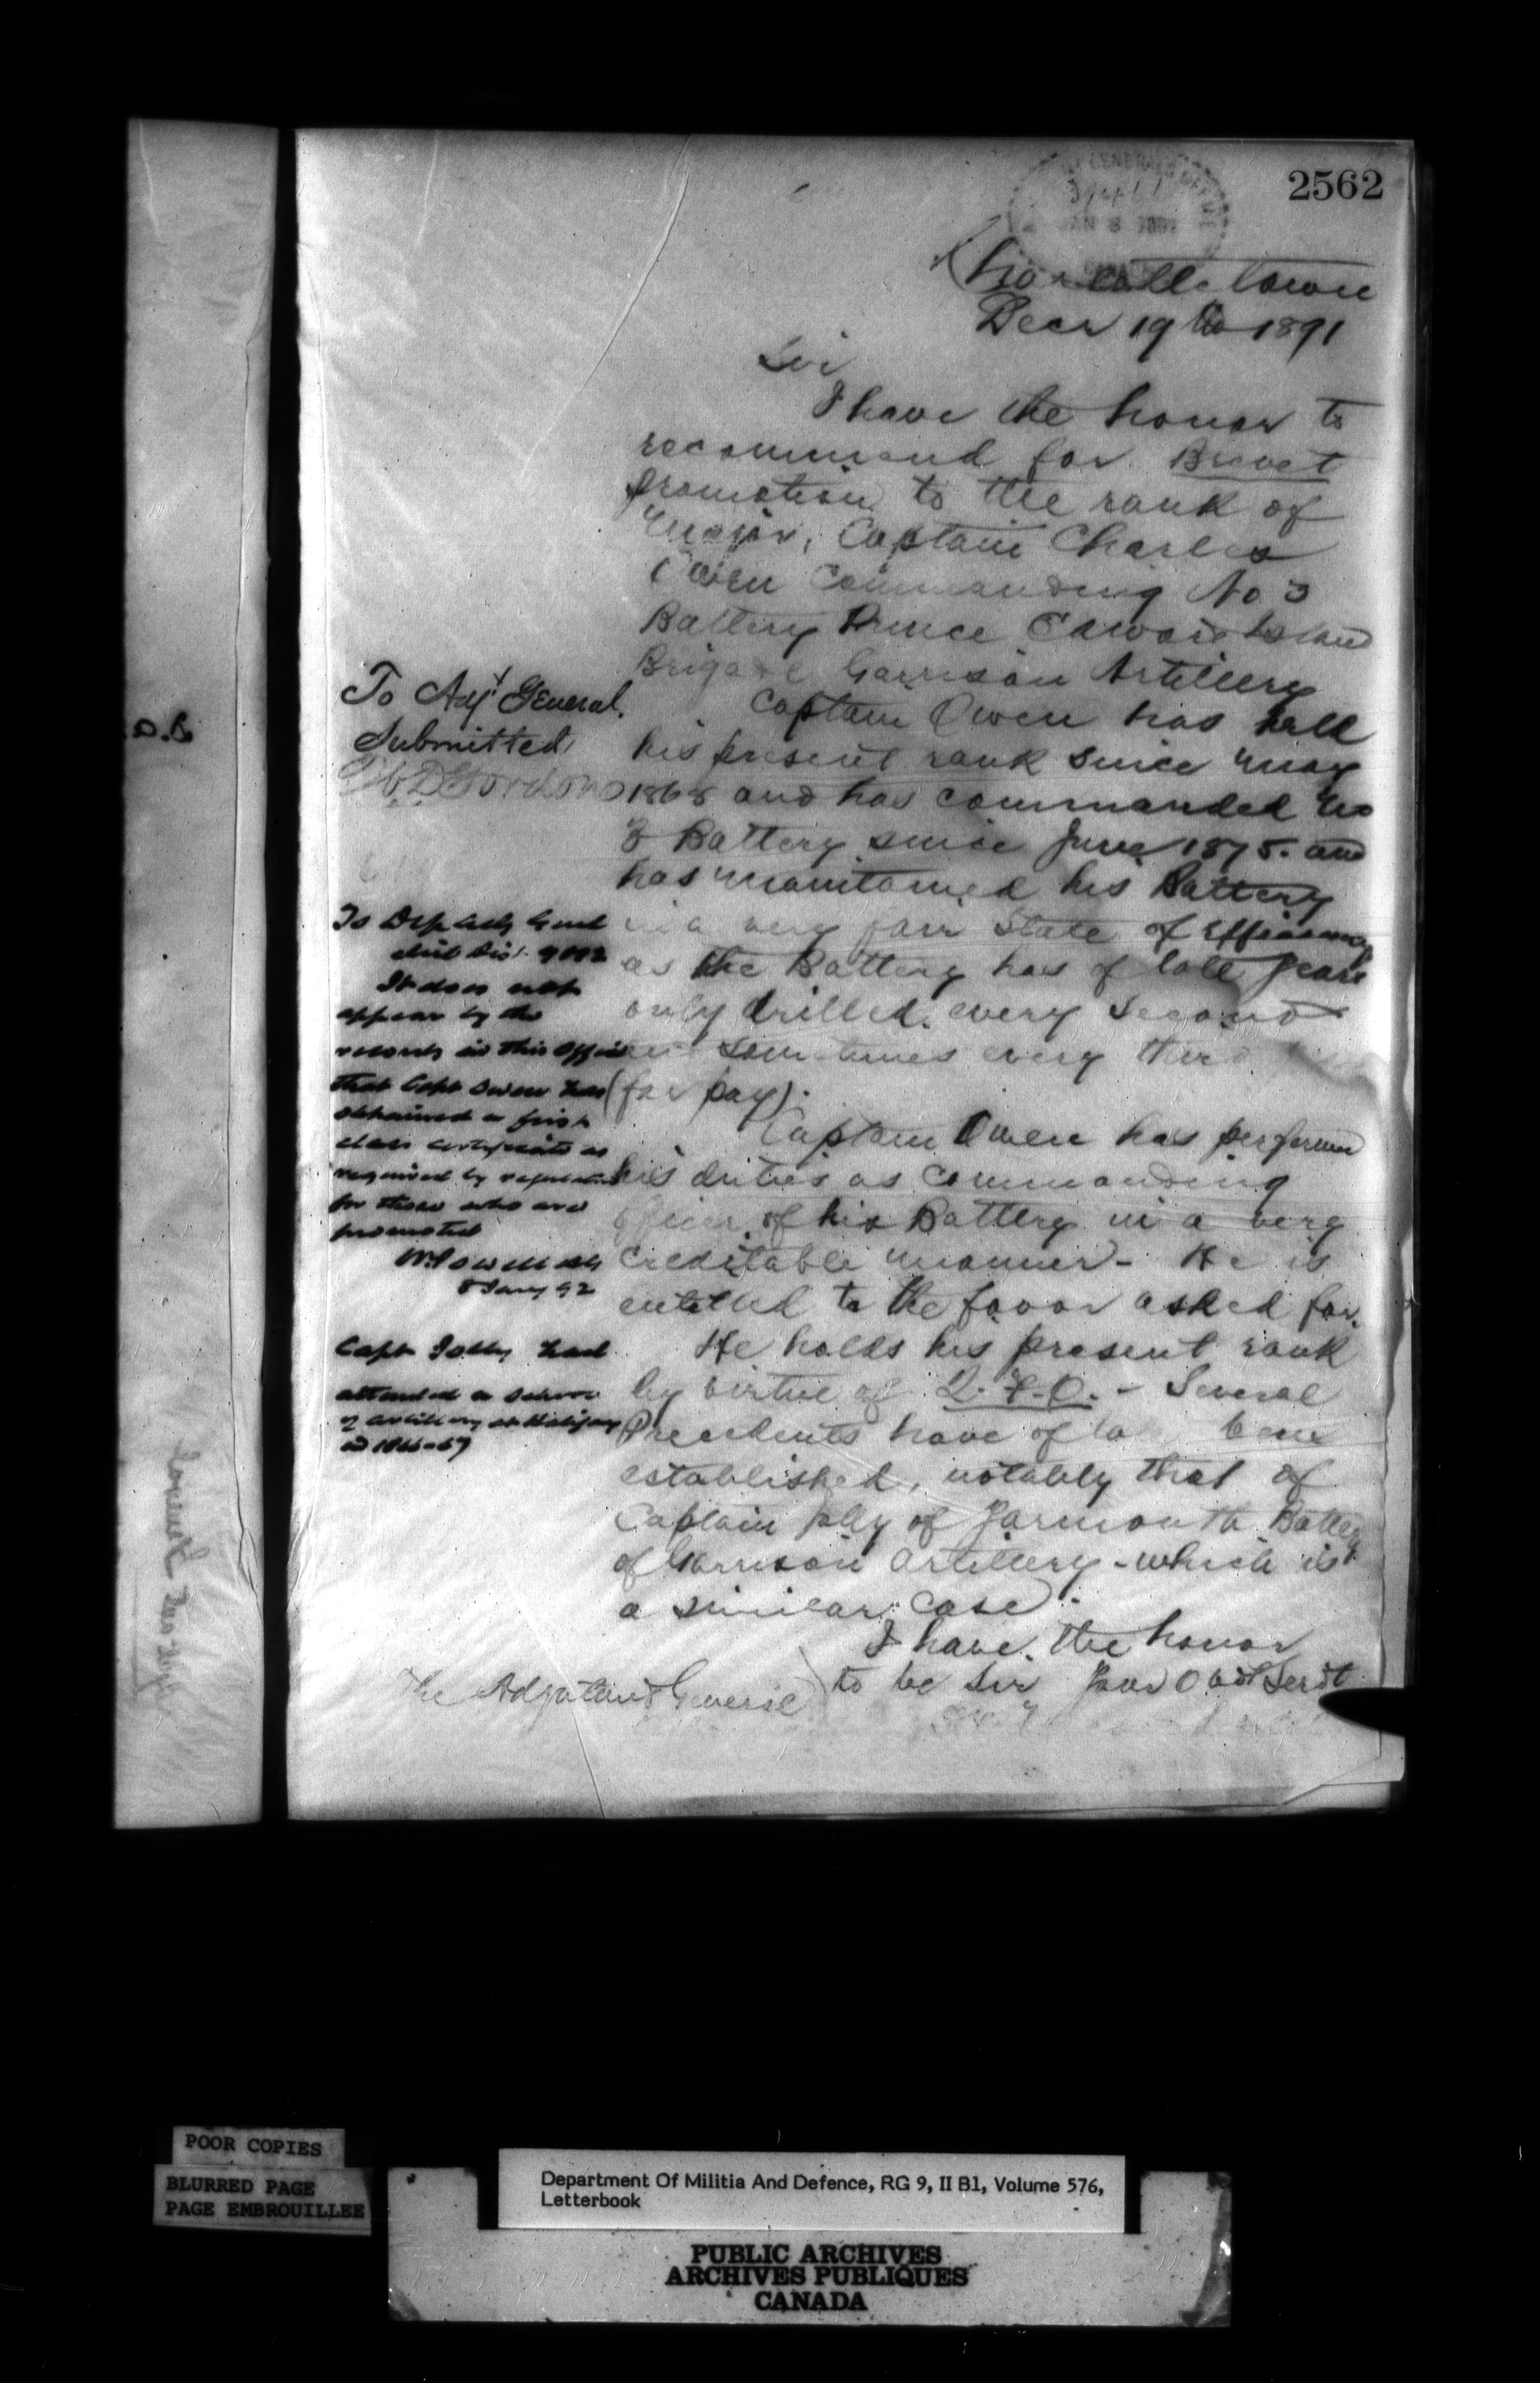 2562
JAN 8 1892
Charlottetown
Decr 19th 1891
Sir
I have the honor to
recommend for Brevet
promotion to the rank of
Major, Captain Charles
Owen Commanding No 3
Battery Prince Edward Island
Brigade Garrison Artillery
Captain Owen has held
his present rank since May
1868 and has commanded No
3 Battery since June 1875. and
has maintained his Battery
in a very fair State of Efficiency
as the Battery has of late years
only drilled every second
and sometimes every third
(for pay).
Captain Owen has performed
his duties as Commanding
Officer of his Battery in a very
creditable manner - He is
entitled to the favor asked for.
He holds his present rank
by virtue of Q.F.O. - Several
Precedents have of late been
established, notably that of
Captain Jolly of Yarmouth Battery
of Garrison Artillery - which is
a similar case.
I have the honor
to be Sir Your Obdt Servt
The Adjutant General
To Adjt General.
Submitted
D Gordon
To Dep Adj Genl
Mil Dis.
It does not
appear by the
records in this Office
that Capt Owen has
obtained a first
class certificate as
required by regulations
for those who are
promoted
8 Jany 92
Capt Jolly had
attended a School
of Artillery at Halifax
in 1866-67
POOR COPIES
BLURRED PAGE
PAGE EMBROUILLEE
Department Of Militia And Defence, RG 9, II B1, Volume 576,
Letterbook
PUBLIC ARCHIVES
ARCHIVES PUBLIQUES
CANADA